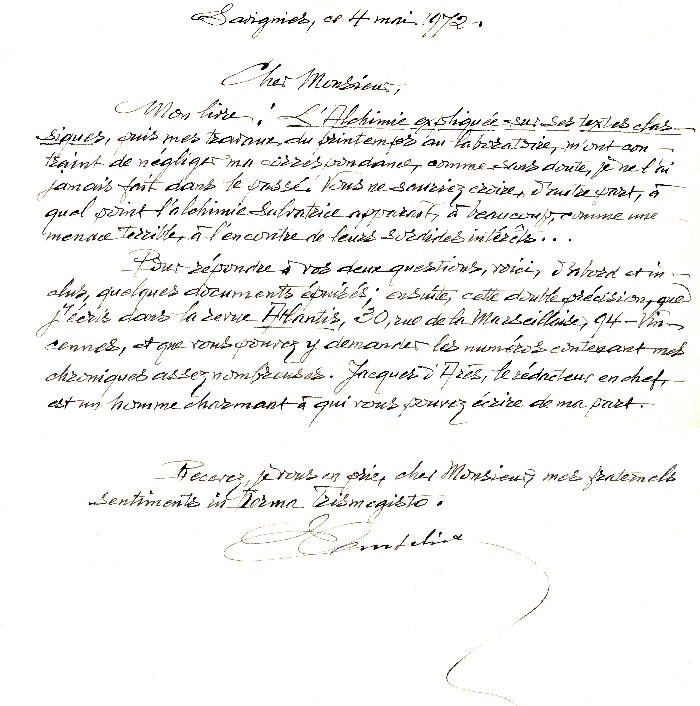 Savignies, ce 4 mai 1972.
Cher Monsieur,
Mon livre : L'Alchimie expliquée sur ses textes clas-
siques, puis mes travaux du printemps au laboratoire, m'ont con-
traint de négliger ma correspondance, comme sans doute, je ne l'ai
jamais fait dans le passé. Vous ne sauriez croire, d'autre part, à
quel point l'alchimie salvatrice apparaît, à beaucoup, comme une
menace terrible, à l'encontre de leurs sordides intérêts...
Pour répondre à vos deux questions, voici, d'abord et in-
clus, quelques documents épuisés ; ensuite, cette double précision, que
j'écris dans la revue Atlantis, 30, rue de la Marseillaise, 94 - Vin-
cennes, et que vous pouvez y demander les numéros contenant mes
chroniques assez nombreuses. Jacques d'Arès, le rédacteur en chef,
est un homme charmant à qui vous pouvez écrire de ma part.
Recevez, je vous en prie, cher Monsieur, mes fraternels
sentiments in Herma Trismegisto.